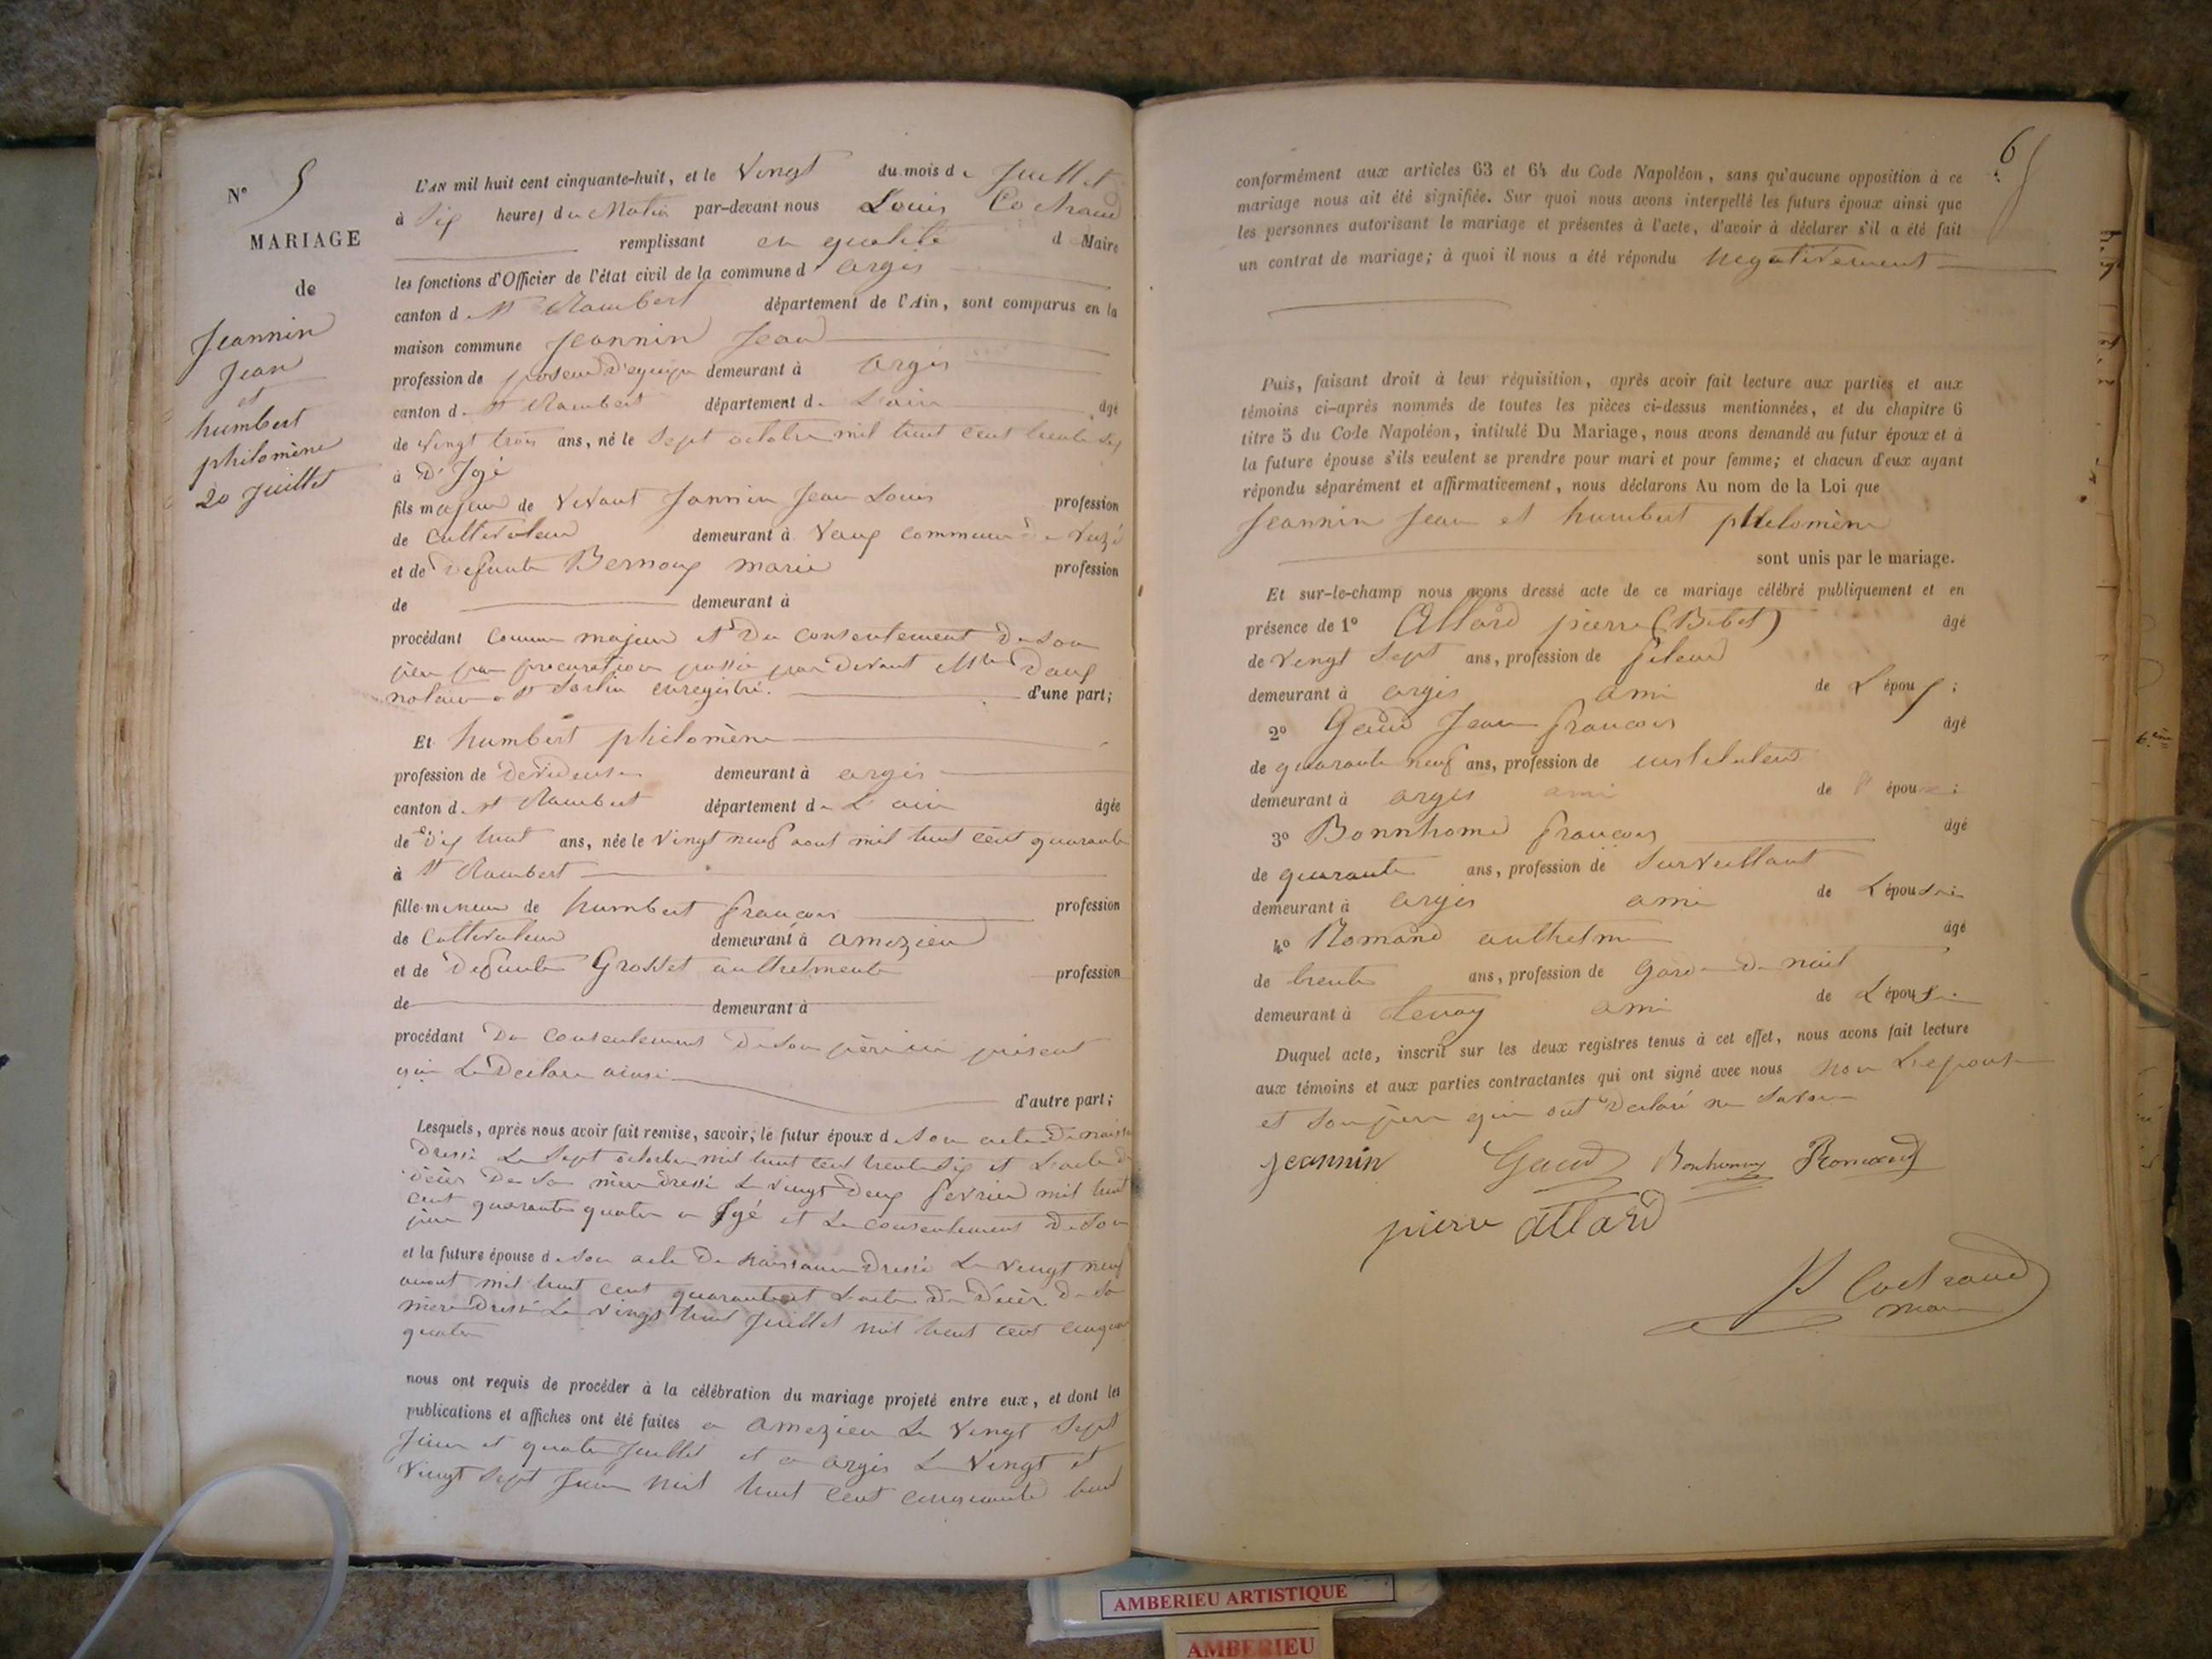 N° 5
MARIAGE
de
Jeannin
Jean
et
humbert
philomène
20 Juillet
L'AN mil huit cent cinquante-huit, et le Vingt du mois de Juillet
à Six heures du Matin par-devant nous Louis Cochaud
remplissant en qualité d Maire
les fonctions d'Officier de l'état civil de la commune d argis
canton d St Rambert département de l'Ain, sont comparus en la
maison commune Jeannin Jean
profession de poseur d'equipe demeurant à argis
canton d St Rambert département de L'ain âgé
de Vingt trois ans, né le Sept octobre mil huit cent trente six
à D'Igé
fils majeur de Vivant Jannin Jean Louis profession
de Cultivateur demeurant à Vaux commune de Verzé
et de defunte Bernoux marie profession
de demeurant à
procédant comme majeur et du consentement de son
père par procuration passé par devant Mtre Daux
notaire a St Sorlin enregistré. d'une part;
Et humbert philomène
profession de devideuse demeurant à argis
canton d St Rambert département de L'ain âgée
de dix huit ans, née le Vingt neuf aout mil huit cent quarante
à St Rambert
fille mineur de humbert françois profession
de Cultivateur demeurant à amezieu
et de defunte Grosset anthelmente profession
de demeurant à
procédant Du consentement de son père ici présent
qui Le Déclare ainsi
d'autre part;
Lesquels, après nous avoir fait remise, savoir; le futur époux de son acte de naiss
dressé Le Sept octobre mil huit cent trente six et L'acte de
décès de sa mère dressé Le vingt deux fevrier mil huit
cent quarante quatre a Igé et Le consentement de son
père
et la future épouse de son acte de naissance dressé Le vingt neuf
auout mil huit cent quarante et L'acte de décès de sa
mère dressé Le vingt huit Juillet mil huit cent cinqua
quatre
nous ont requis de procéder à la célébration du mariage projeté entre eux, et dont les
publications et affiches ont été faites a amezieu Le Vingt Sept
Juin et quatre Juillet et a argis Le Vingt et
Vingt Sept Juin mil huit cent cinquante huit
6
conformément aux articles 63 et 64 du Code Napoléon, sans qu'aucune opposition à ce
mariage nous ait été signifiée. Sur quoi nous avons interpellé les futurs époux ainsi que
les personnes autorisant le mariage et présentes à l'acte, d'avoir à déclarer s'il a été fait
un contrat de mariage; à quoi il nous a été répondu negativement
Puis, faisant droit à leur réquisition, après avoir fait lecture aux parties et aux
témoins ci-après nommés de toutes les pièces ci-dessus mentionnées, et du chapitre 6
titre 5 du Code Napoléon, intitulé Du Mariage, nous avons demandé au futur époux et à
la future épouse s'ils veulent se prendre pour mari et pour femme; et chacun d'eux ayant
répondu séparément et affirmativement, nous déclarons Au nom de la Loi que
Jeannin Jean et humbert philomène
sont unis par le mariage.
Et sur-le-champ nous avons dressé acte de ce mariage célébré publiquement et en
présence de 1° Allard pierre (Bebet) âgé
de vingt Sept ans, profession de fileur
demeurant à argis ami de L époux;
2° Gaud Jean francois âgé
de quarante neuf ans, profession de instituteur
demeurant à argis ami de l' époux;
3° Bonnhome francois âgé
de quarante ans, profession de Surveillant
demeurant à argis ami de L épouse
4° Romand anthelme âgé
de trente ans, profession de Garde de nuit
demeurant à tenay ami de L épouse
Duquel acte, inscrit sur les deux registres tenus à cet effet, nous avons fait lecture
aux témoins et aux parties contractantes qui ont signé avec nous non L'epouse
et son père qui ont déclaré ne Savoir
Jeannin Gaud Bonhomme Romand
pierre allard
Cochaud
maire
AMBERIEU ARTISTIQUE
AMBERIEU